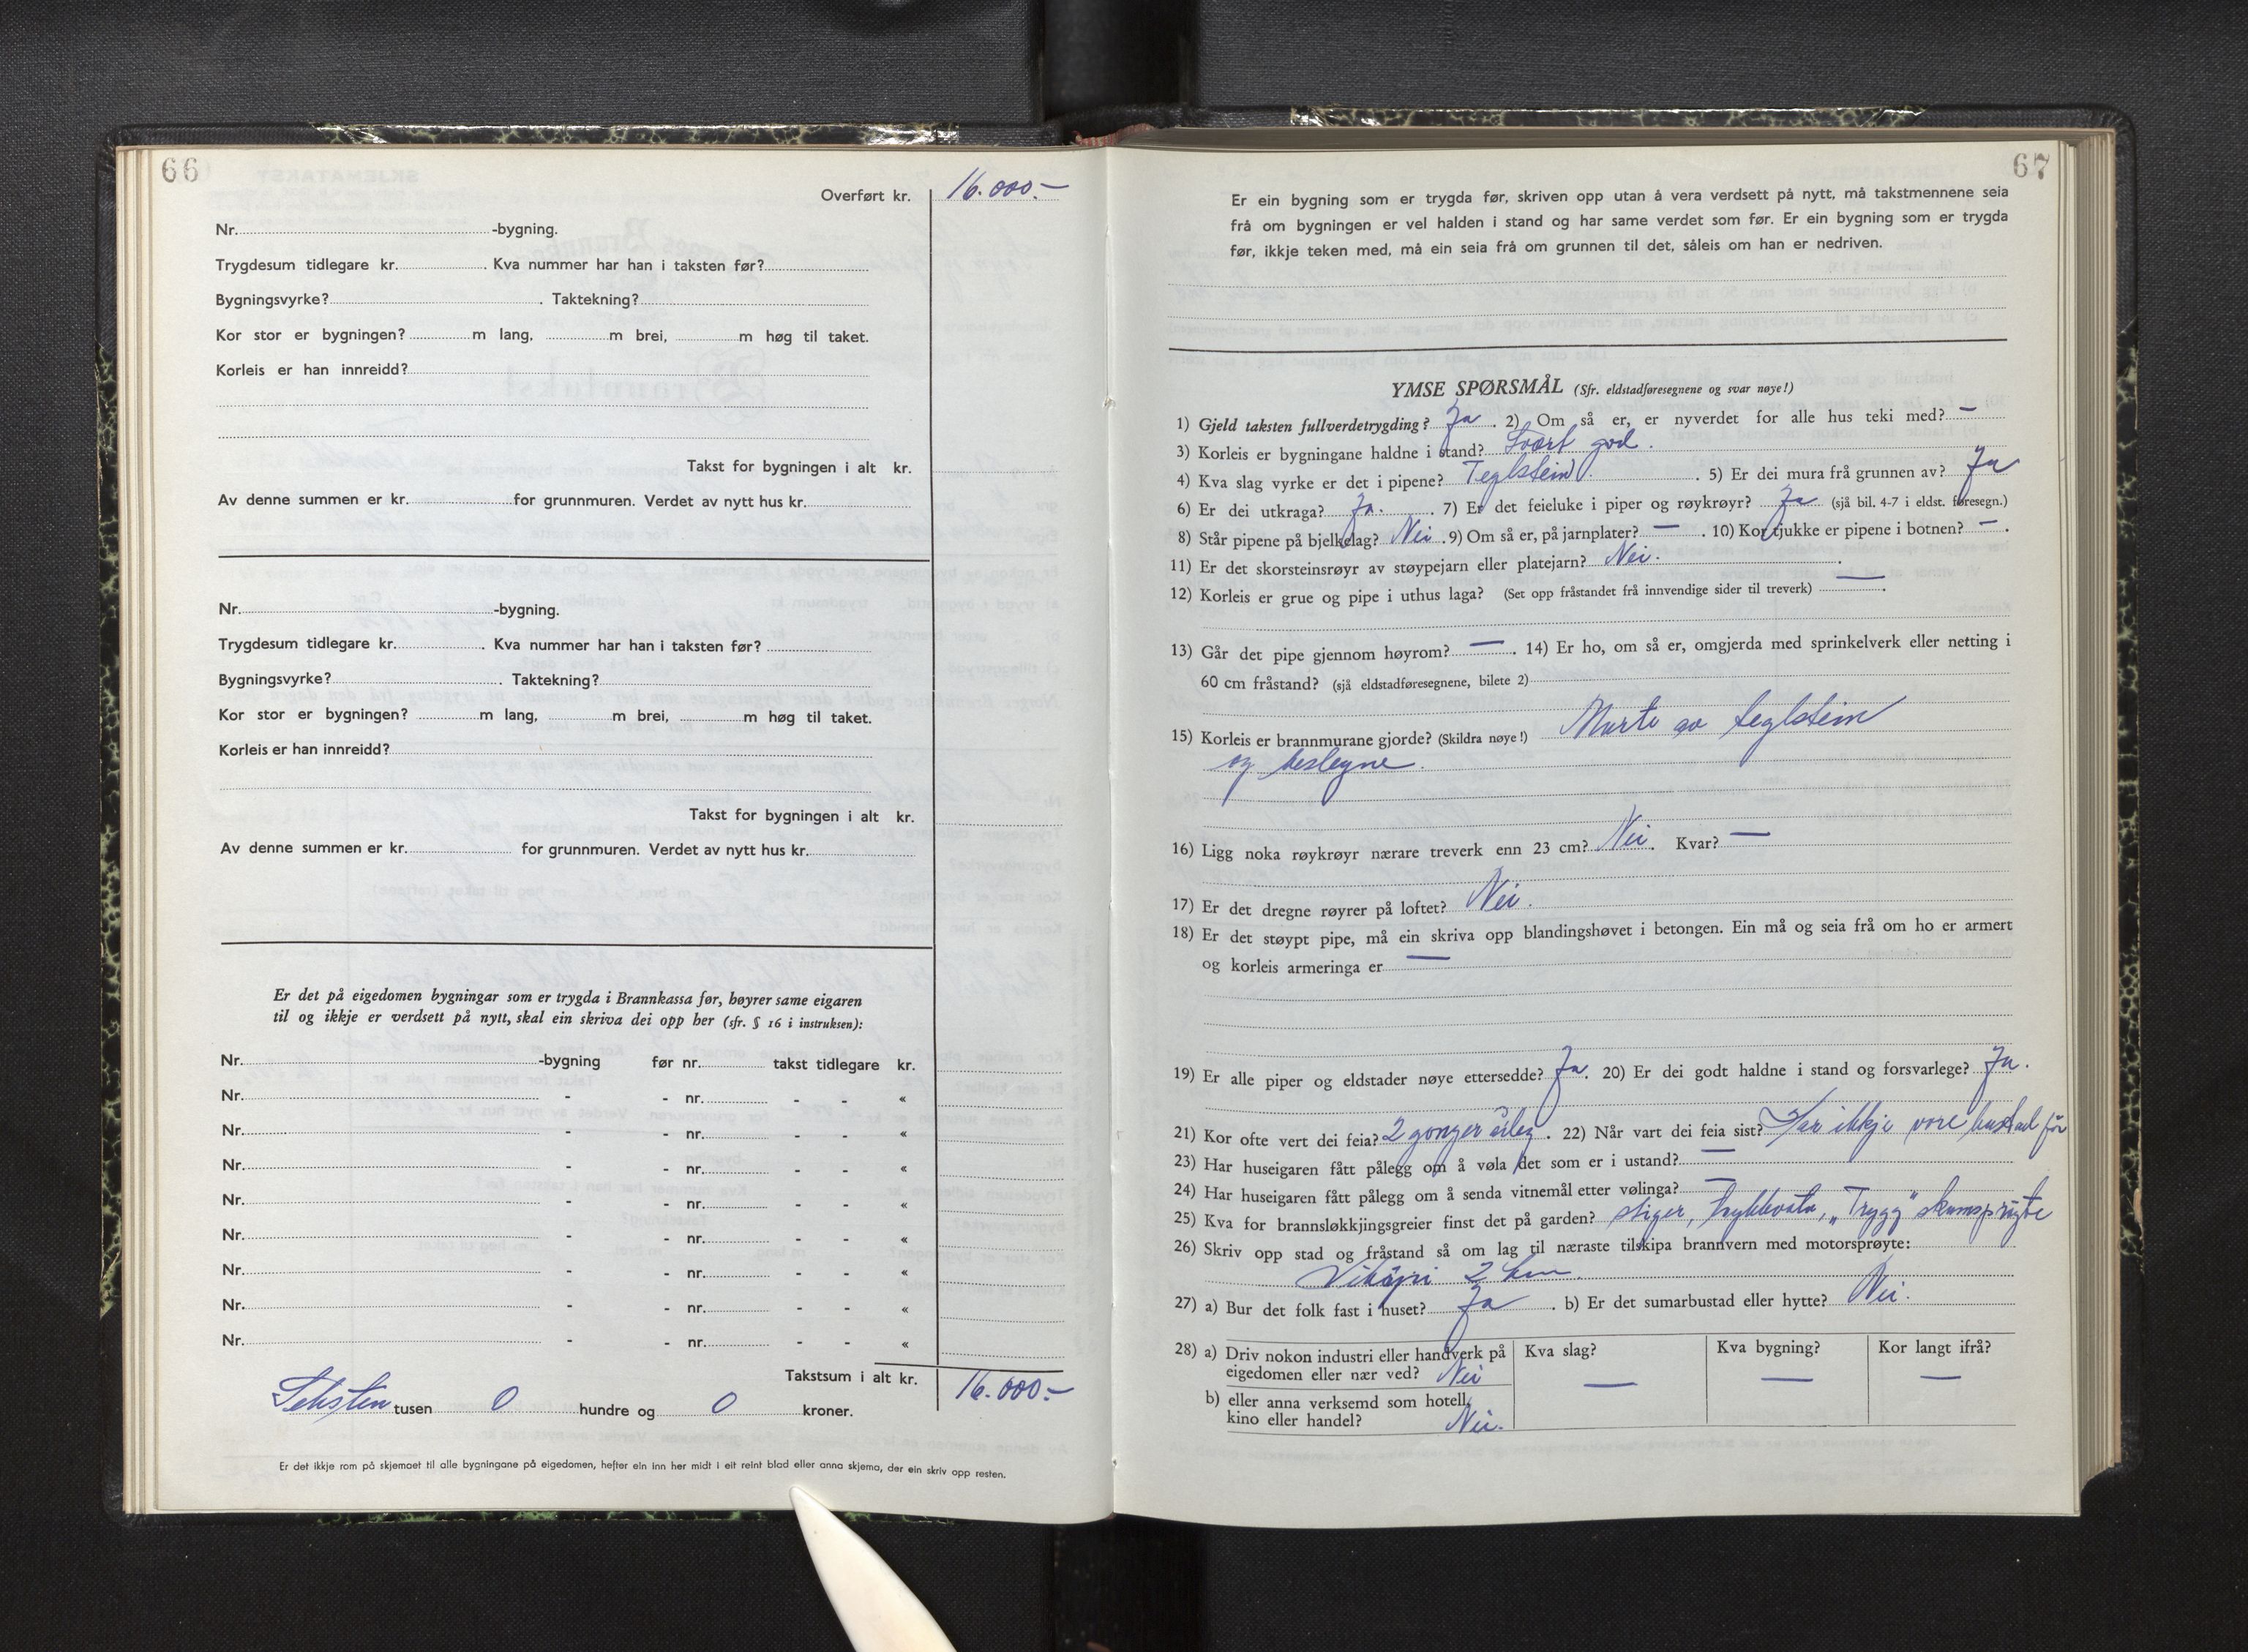 66
Overført kr. 16.000.–
Nr. -bygning.
Trygdesum tidlegare kr. . Kva nummer har han i taksten før?
Bygningsvyrke? . Taktekning?
Kor stor er bygningen? m lang, m brei, m høg til taket.
Korleis er han innreidd?
Takst for bygningen i alt kr.
Av denne summen er kr. for grunnmuren. Verdet av nytt hus kr.
Nr. -bygning.
Trygdesum tidlegare kr. . Kva nummer har han i taksten før?
Bygningsvyrke? . Taktekning?
Kor stor er bygningen? m lang, m brei, m høg til taket.
Korleis er han innreidd?
Takst for bygningen i alt kr.
Av denne summen er kr. for grunnmuren. Verdet av nytt hus kr.
Er det på eigedomen bygningar som er trygda i Brannkassa før, høyrer same eigaren
til og ikkje er verdsett på nytt, skal ein skriva dei opp her (sfr. § 16 i instruksen):
Nr. -bygning før nr. takst tidlegare kr.
Nr. - - nr. - - «
Nr. - - nr. - - «
Nr. - - nr. - - «
Nr. - - nr. - - «
Nr. - - nr. - - «
Nr. - - nr. - - «
Nr. - - nr. - - «
Nr. - - nr. - - «
Takstsum i alt kr. 16.000.–
Seksten tusen 0 hundre og 0 kroner.
Er det ikkje rom på skjemaet til alle bygningane på eigedomen, hefter ein inn her midt i eit reint blad eller anna skjema, der ein skriv opp resten.
67
Er ein bygning som er trygda før, skriven opp utan å vera verdsett på nytt, må takstmennene seia
frå om bygningen er vel halden i stand og har same verdet som før. Er ein bygning som er trygda
før, ikkje teken med, må ein seia frå om grunnen til det, såleis om han er nedriven.
YMSE SPØRSMÅL (Sfr. eldstadføresegnene og svar nøye!)
1) Gjeld taksten fullverdetrygding? Ja . 2) Om så er, er nyverdet for alle hus teki med? –
3) Korleis er bygningane haldne i stand? Svært god.
4) Kva slag vyrke er det i pipene? Teglstein . 5) Er dei mura frå grunnen av? Ja
6) Er dei utkraga? Ja. . 7) Er det feieluke i piper og røykrøyr? Ja (sjå bil. 4-7 i eldst. føresegn.)
8) Står pipene på bjelkelag? Nei . 9) Om så er, på jarnplater? – . 10) Kor tjukke er pipene i botnen? – .
11) Er det skorsteinsrøyr av støypejarn eller platejarn? Nei. .
12) Korleis er grue og pipe i uthus laga? (Set opp fråstandet frå innvendige sider til treverk) – .
13) Går det pipe gjennom høyrom? – . 14) Er ho, om så er, omgjerda med sprinkelverk eller netting i
60 cm fråstand? (sjå eldstadføresegnene, bilete 2)
15) Korleis er brannmurane gjorde? (Skildra nøye!) Murte av teglstein
og beslegne.
16) Ligg noka røykrøyr nærare treverk enn 23 cm? Nei. Kvar? –
17) Er det dregne røyrer på loftet? Nei.
18) Er det støypt pipe, må ein skriva opp blandingshøvet i betongen. Ein må og seia frå om ho er armert
og korleis armeringa er –
19) Er alle piper og eldstader nøye ettersedde? Ja. 20) Er dei godt haldne i stand og forsvarlege? Ja.
21) Kor ofte vert dei feia? 2 gonger årleg . 22) Når vart dei feia sist? Har ikkje vore bustad før
23) Har huseigaren fått pålegg om å vøla det som er i ustand? –
24) Har huseigaren fått pålegg om å senda vitnemål etter vølinga? –
25) Kva for brannsløkkjingsgreier finst det på garden? stiger, trykkvatn, „Trygg" skumsprøyte
26) Skriv opp stad og fråstand så om lag til næraste tilskipa brannvern med motorsprøyte:
Vikøyri 2 km.
27) a) Bur det folk fast i huset? Ja . b) Er det sumarbustad eller hytte? Nei.
28) a) Driv nokon industri eller handverk på Kva slag? Kva bygning? Kor langt ifrå?
eigedomen eller nær ved? Nei – – –
b) eller anna verksemd som hotell,
kino eller handel? Nei.